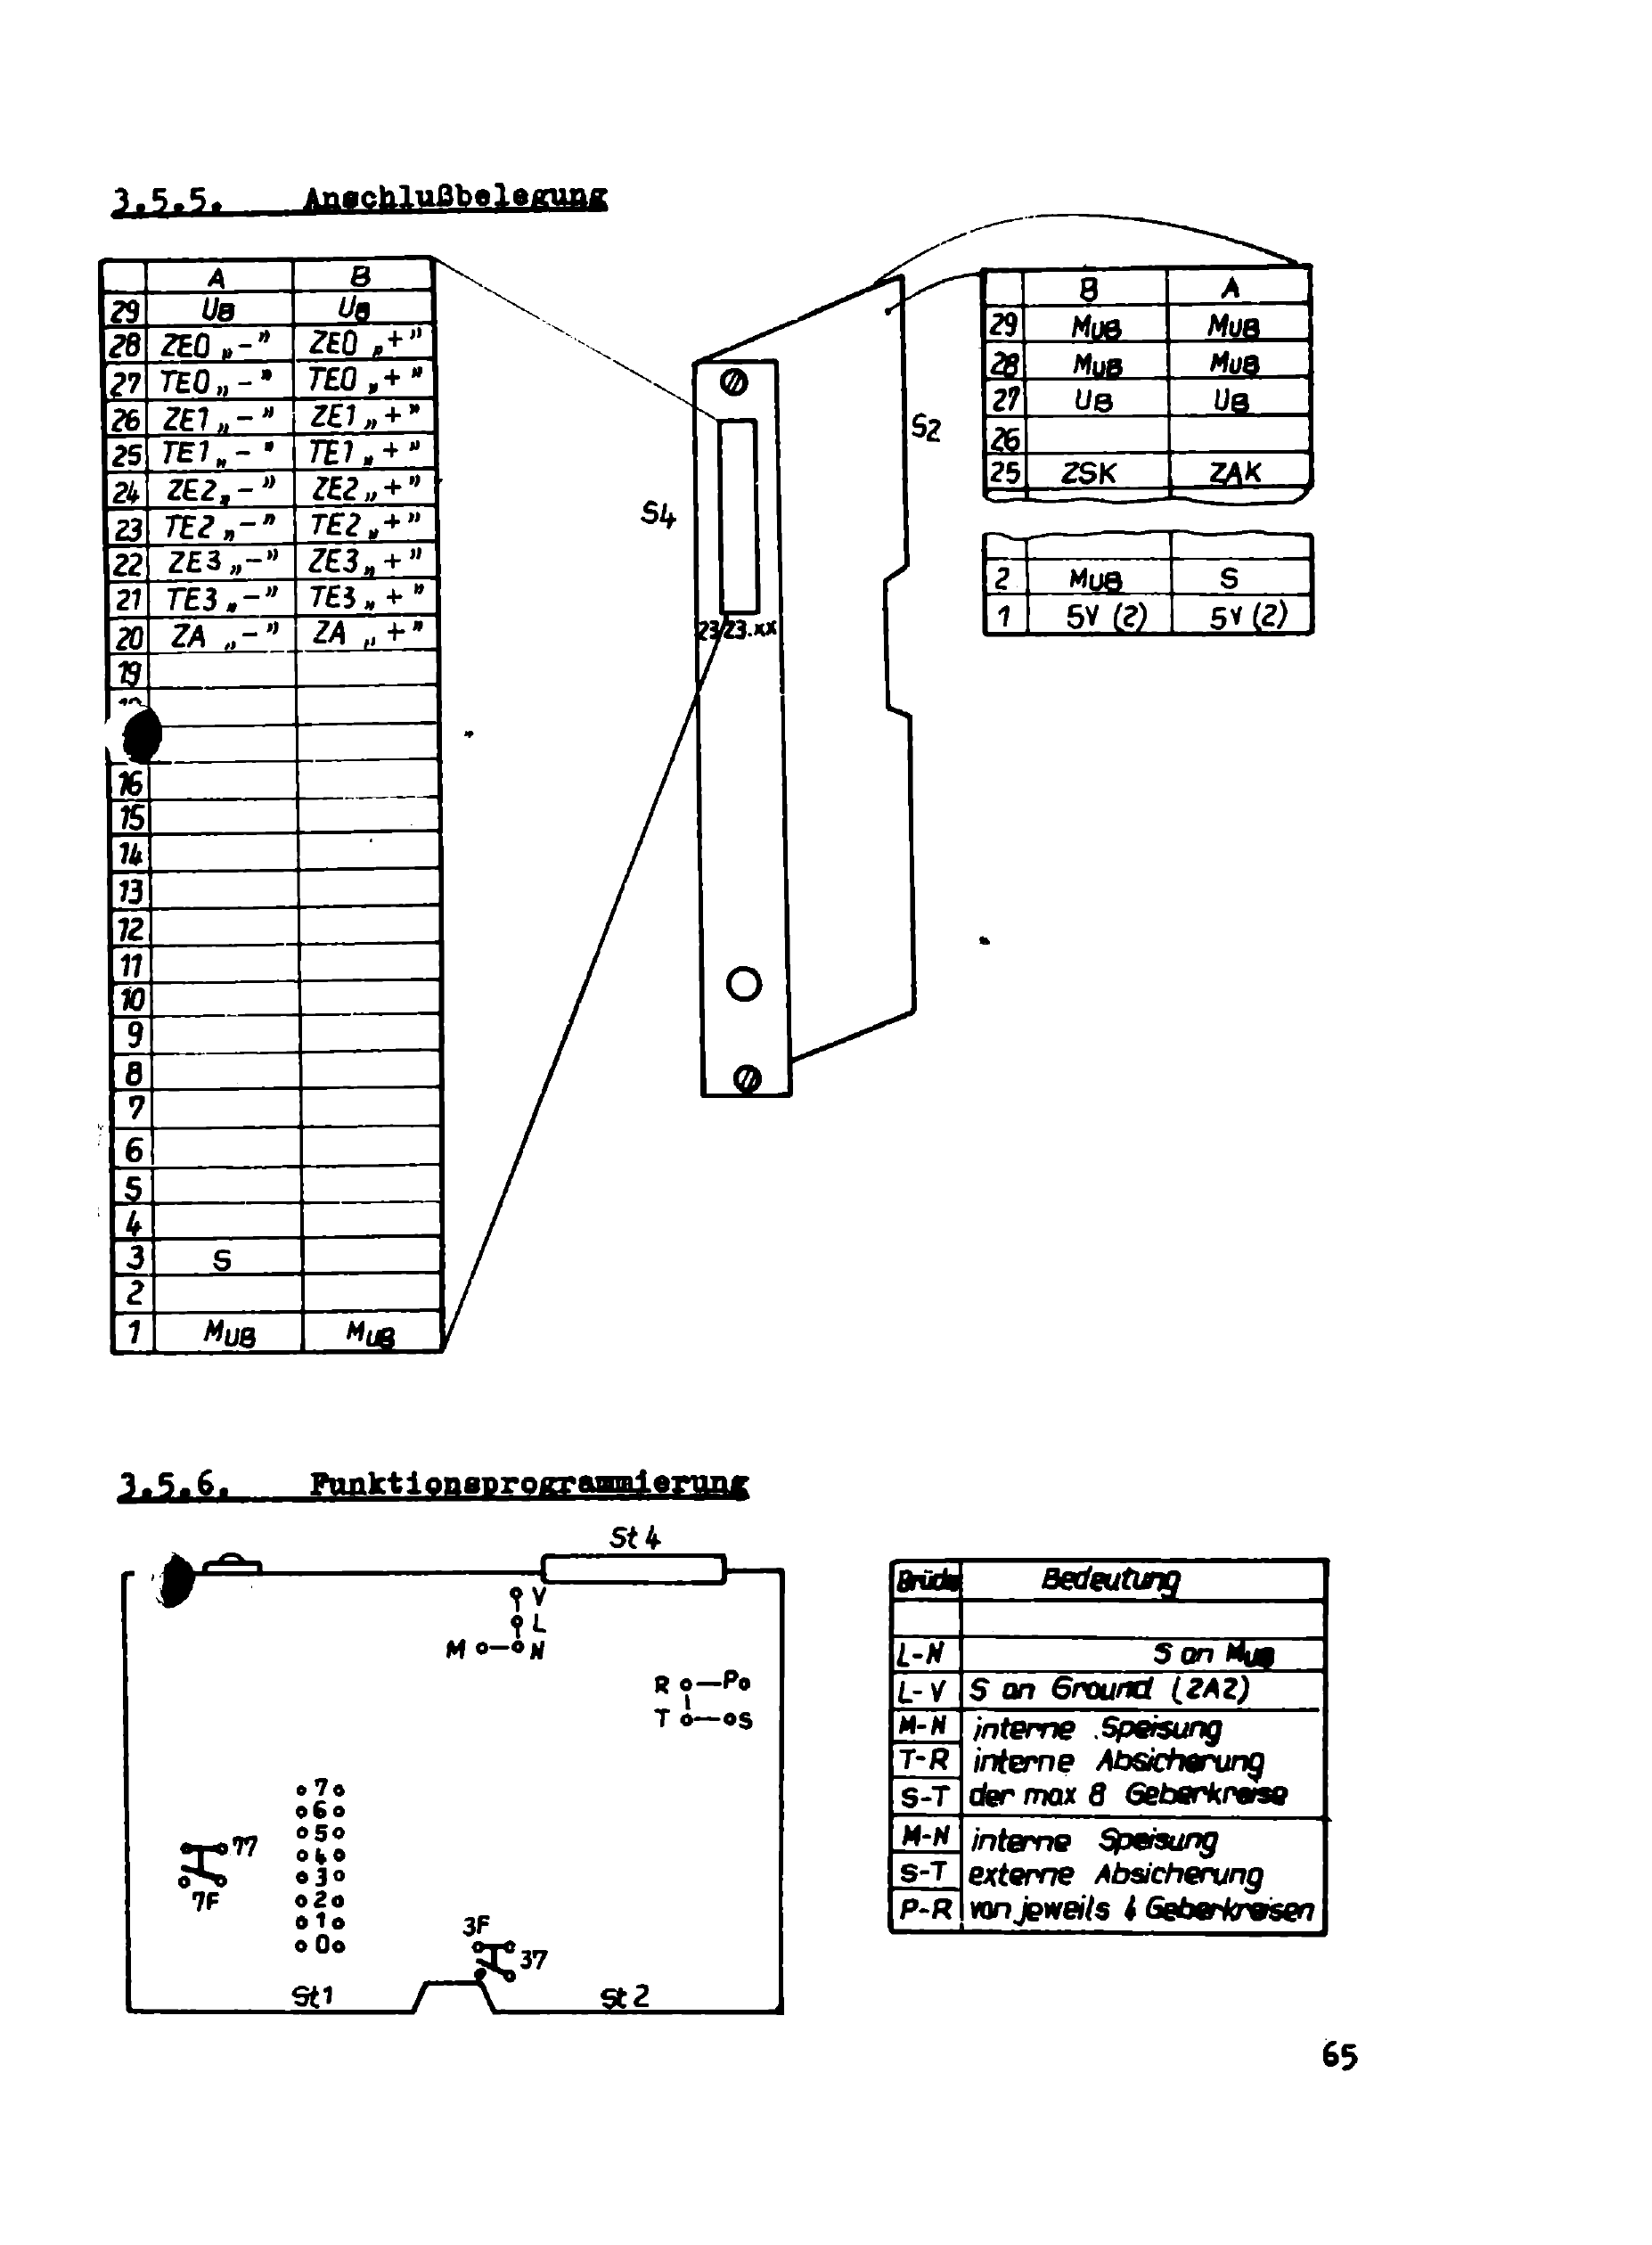 3.5.5. Anschlußbelegung
A B
29 UB UB
28 ZE0 „-” ZE0 „+”
27 TE0 „-” TE0 „+”
26 ZE1 „-” ZE1 „+”
25 TE1 „-” TE1 „+”
24 ZE2 „-” ZE2 „+”
23 TE2 „-” TE2 „+”
22 ZE3 „-” ZE3 „+”
21 TE3 „-” TE3 „+”
20 ZA „-” ZA „+”
19
16
15
14
13
12
11
10
9
8
7
6
5
4
3 S
2
1 MUB MUB
S4
23/23.xx
S2
B A
29 MUB MUB
28 MUB MUB
27 UB UB
26
25 ZSK ZAK
2 MUB S
1 5V (2) 5V (2)
3.5.6. Funktionsprogrammierung
St 4
V
L
M N
R P
T S
7
6
5
4
3
2
1
0
77
7F
3F
37
St1
St 2
Brücke Bedeutung
L-N S an MUB
L-V S an Ground (2A2)
M-N interne Speisung
T-R interne Absicherung
S-T der max 8 Geberkreise
M-N interne Speisung
S-T externe Absicherung
P-R von jeweils Geberkreisen
65